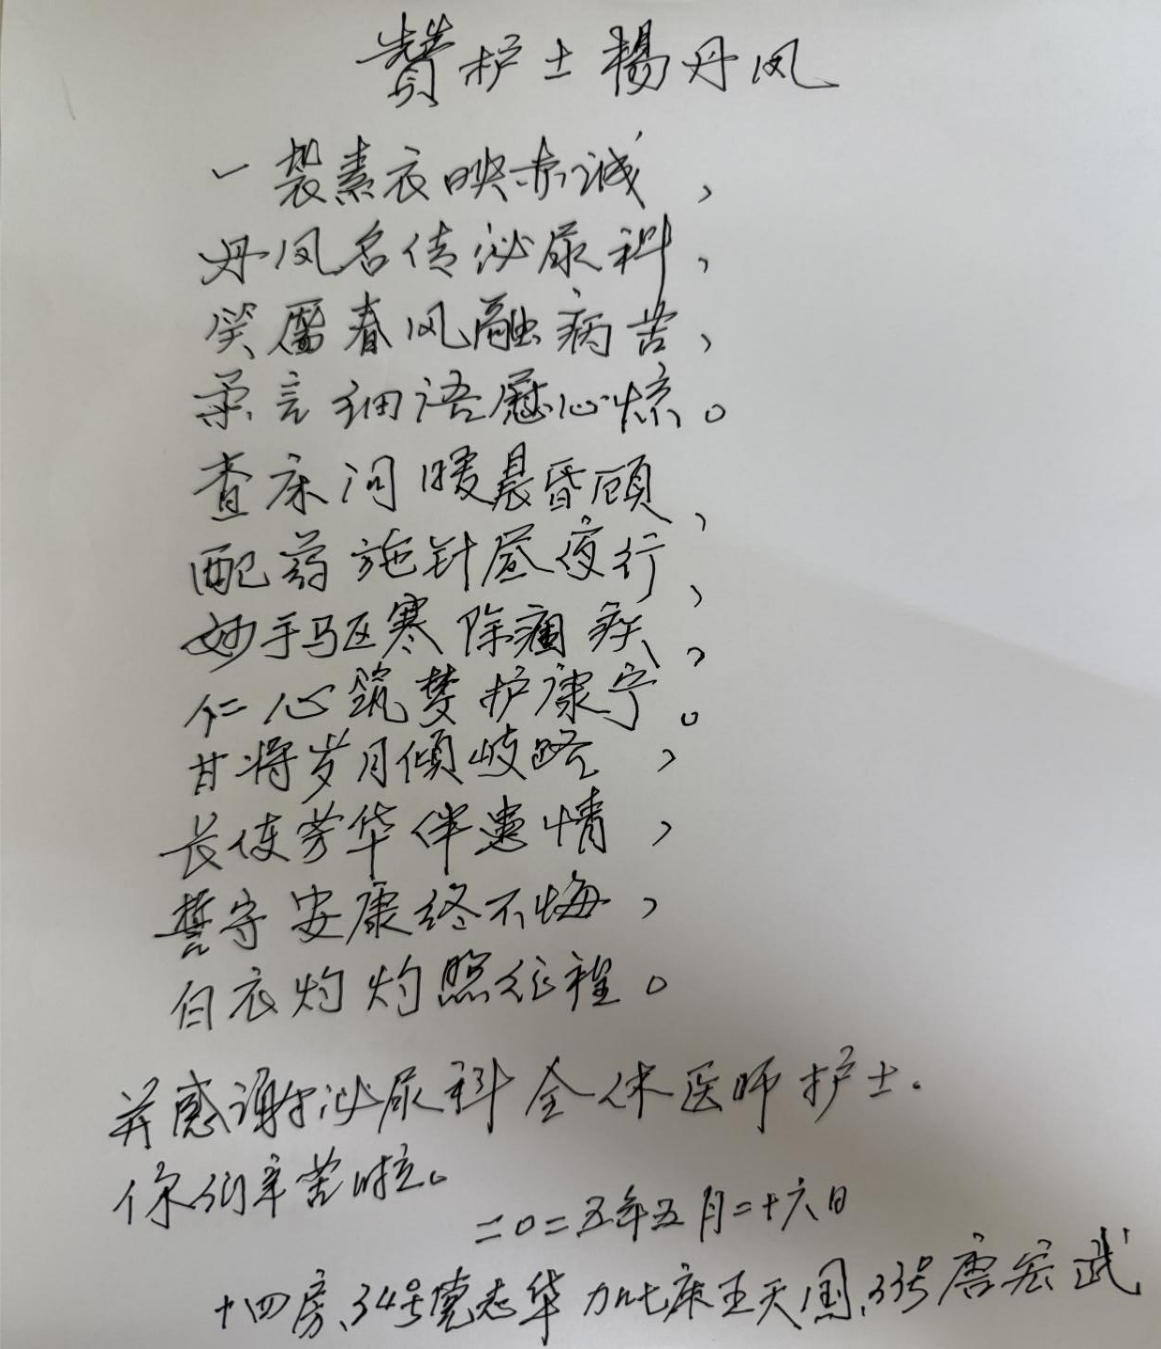 赞护士楊丹凤
一袭素衣映赤诚，
丹凤名传泌尿科，
笑靥春风融病苦，
柔言细语慰心惊。
查床问暖晨昏顾，
配药施针昼夜行，
妙手驱寒除痼疾，
仁心筑梦护康宁。
甘将岁月倾岐路，
长使芳华伴患情，
誓守安康终不悔，
白衣灼灼照征程。
并感谢泌尿科全体医师护士.
你们辛苦啦。
二〇二五年五月二十六日
十四房、34号 志华 加七床王天国、33号唐宏武